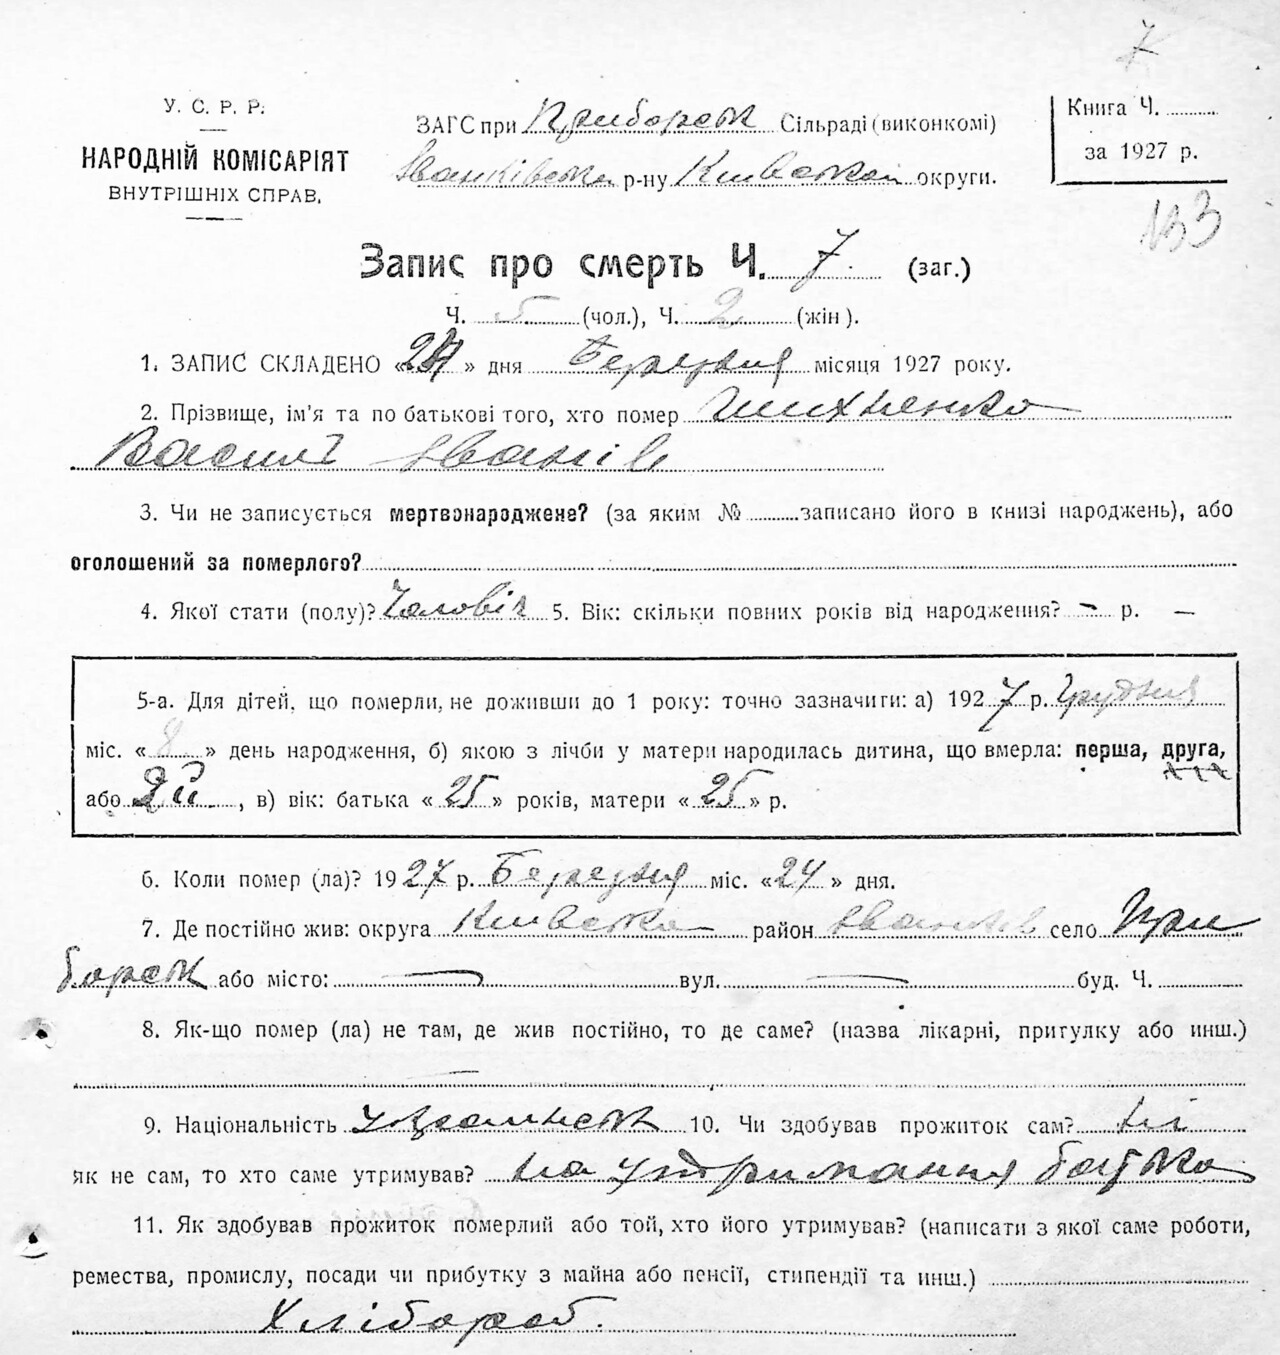 7
У. С. Р. Р.
НАРОДНІЙ КОМІСАРІЯТ
ВНУТРІШНІХ СПРАВ.
ЗАГС при Приборськ Сільраді (виконкомі)
Іванківськ р-ну Київської округи.
Книга Ч.
за 1927 р.
133
Запис про смерть Ч. 7. (заг.)
Ч. 5 (чол.), Ч. 2 (жін).
1. ЗАПИС СКЛАДЕНО «24» дня Березня місяця 1927 року.
2. Прізвище, ім'я та по батькові того, хто помер
Василь Іванів
3. Чи не записується мертвонароджене? (за яким № записано його в книзі народжень), або
оголошений за померлого?
4. Якої стати (полу)? Чоловік 5. Вік: скільки повних років від народження? – р. —
5-а. Для дітей, що померли, не доживши до 1 року: точно зазначити: а) 1927 р. Грудня
міс. «8» день народження, б) якою з лічби у матери народилась дитина, що вмерла: перша, друга,
або 2й, в) вік: батька «25» років, матери «25» р.
6. Коли помер (ла)? 1927 р. Березня міс. «24» дня.
7. Де постійно жив: округа Київська район Іванків село При
борськ або місто: — вул. — буд. Ч.
8. Як-що помер (ла) не там, де жив постійно, то де саме? (назва лікарні, притулку або инш.)
9. Національність Українськ 10. Чи здобував прожиток сам? Ні
як не сам, то хто саме утримував? На утримання батька
11. Як здобував прожиток померлий або той, хто його утримував? (написати з якої саме роботи,
ремества, промислу, посади чи прибутку з майна або пенсії, стипендії та инш.)
Хлібороб.